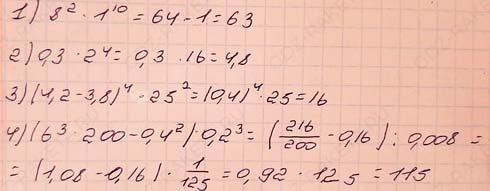 1) 8² · 1¹⁰ = 64 - 1 = 63
2) 0,3 · 2⁴ = 0,3 · 16 = 4,8
3) (4,2 - 3,8)⁴ · 25² = (0,4)⁴ · 25 = 16
4) (6³ · 200 - 0,4²) · 0,2³ = (216/200 - 0,16) : 0,008 =
= (1,08 - 0,16) · 1/125 = 0,92 · 125 = 115